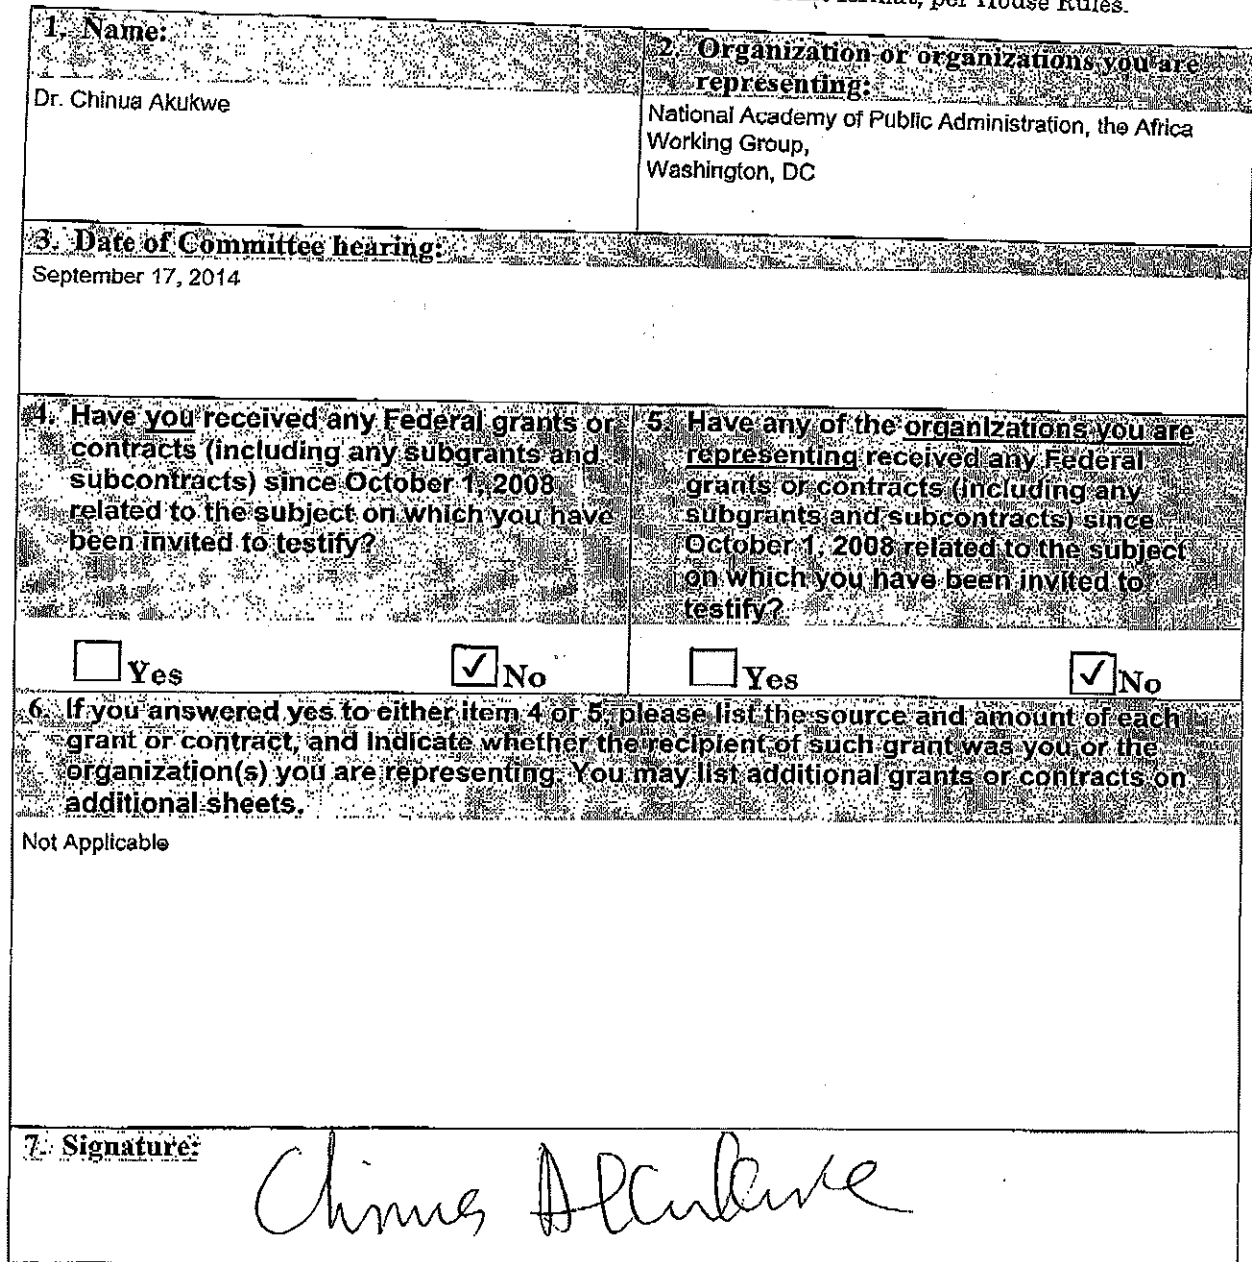 per House Rules.
1. Name:
Dr. Chinua Akukwe
2. Organization or organizations you are
representing:
National Academy of Public Administration, the Africa
Working Group,
Washington, DC
3. Date of Committee hearing:
September 17, 2014
4. Have you received any Federal grants or
contracts (including any subgrants and
subcontracts) since October 1, 2008
related to the subject on which you have
been invited to testify?
5. Have any of the organizations you are
representing received any Federal
grants or contracts (including any
subgrants and subcontracts) since
October 1, 2008 related to the subject
on which you have been invited to
testify?
Yes ✓ No
Yes ✓ No
6. If you answered yes to either item 4 or 5, please list the source and amount of each
grant or contract, and indicate whether the recipient of such grant was you or the
organization(s) you are representing. You may list additional grants or contracts on
additional sheets.
Not Applicable
7. Signature:
Chinua Akukwe